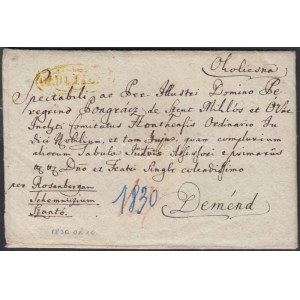 Okolicsna
Spectabili ac Per Illustri Domino Pe-
regrino Pongrácz de Szent Miklós et Óvár
Inclyti Comitatus Honthensis Ordinario Iu-
dici Nobilium, et tam Jujus, quam complurium
aliorum Tabulae Judriae Assessori primarius
Dno et Fratri Singlr colendissimo
per Rosenbergam
Schemniczium
Szántó
1830
Deménd